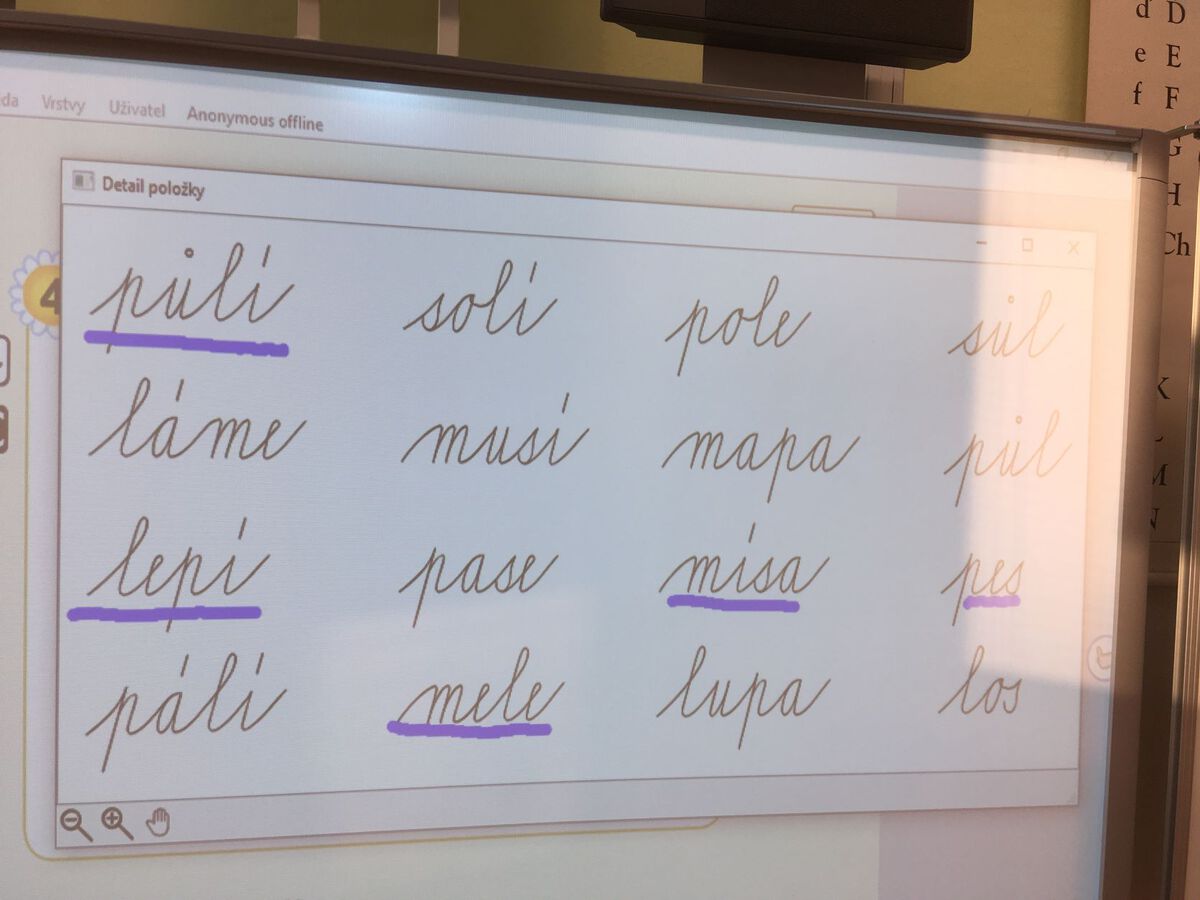 ď D
e E
f F
G
H
Ch
K
L
M
N
da Vrstvy Uživatel Anonymous offline
Detail položky
4
půlí solí pole sůl
láme musí mapa půl
lepí pase mísa pes
pálí mele lupa los